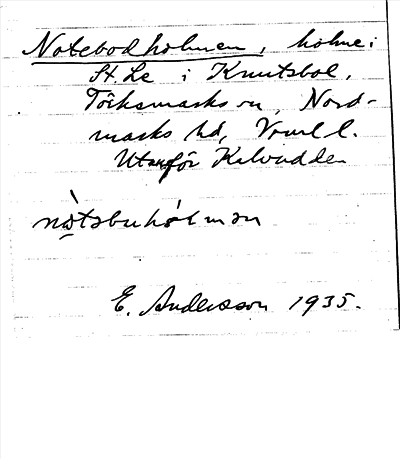 Notebodholmen, holme i
St. Le i Knutsbol,
Töcksmarks sn, Nord-
marks hd, Vrml l.
Utanför Kalvudden
nòtabuhólman
E. Andersson 1935.